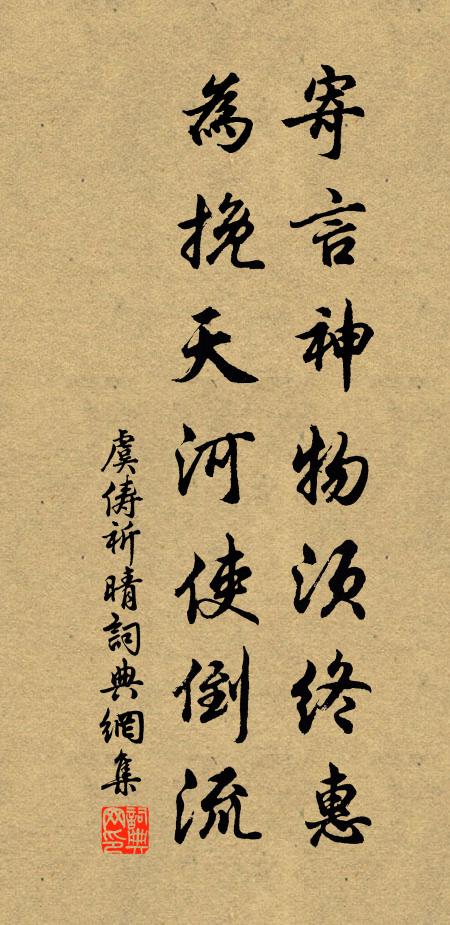 寄言神物須終惠
為挽天河使倒流
虞儔祈晴詞典網集
詞典網印